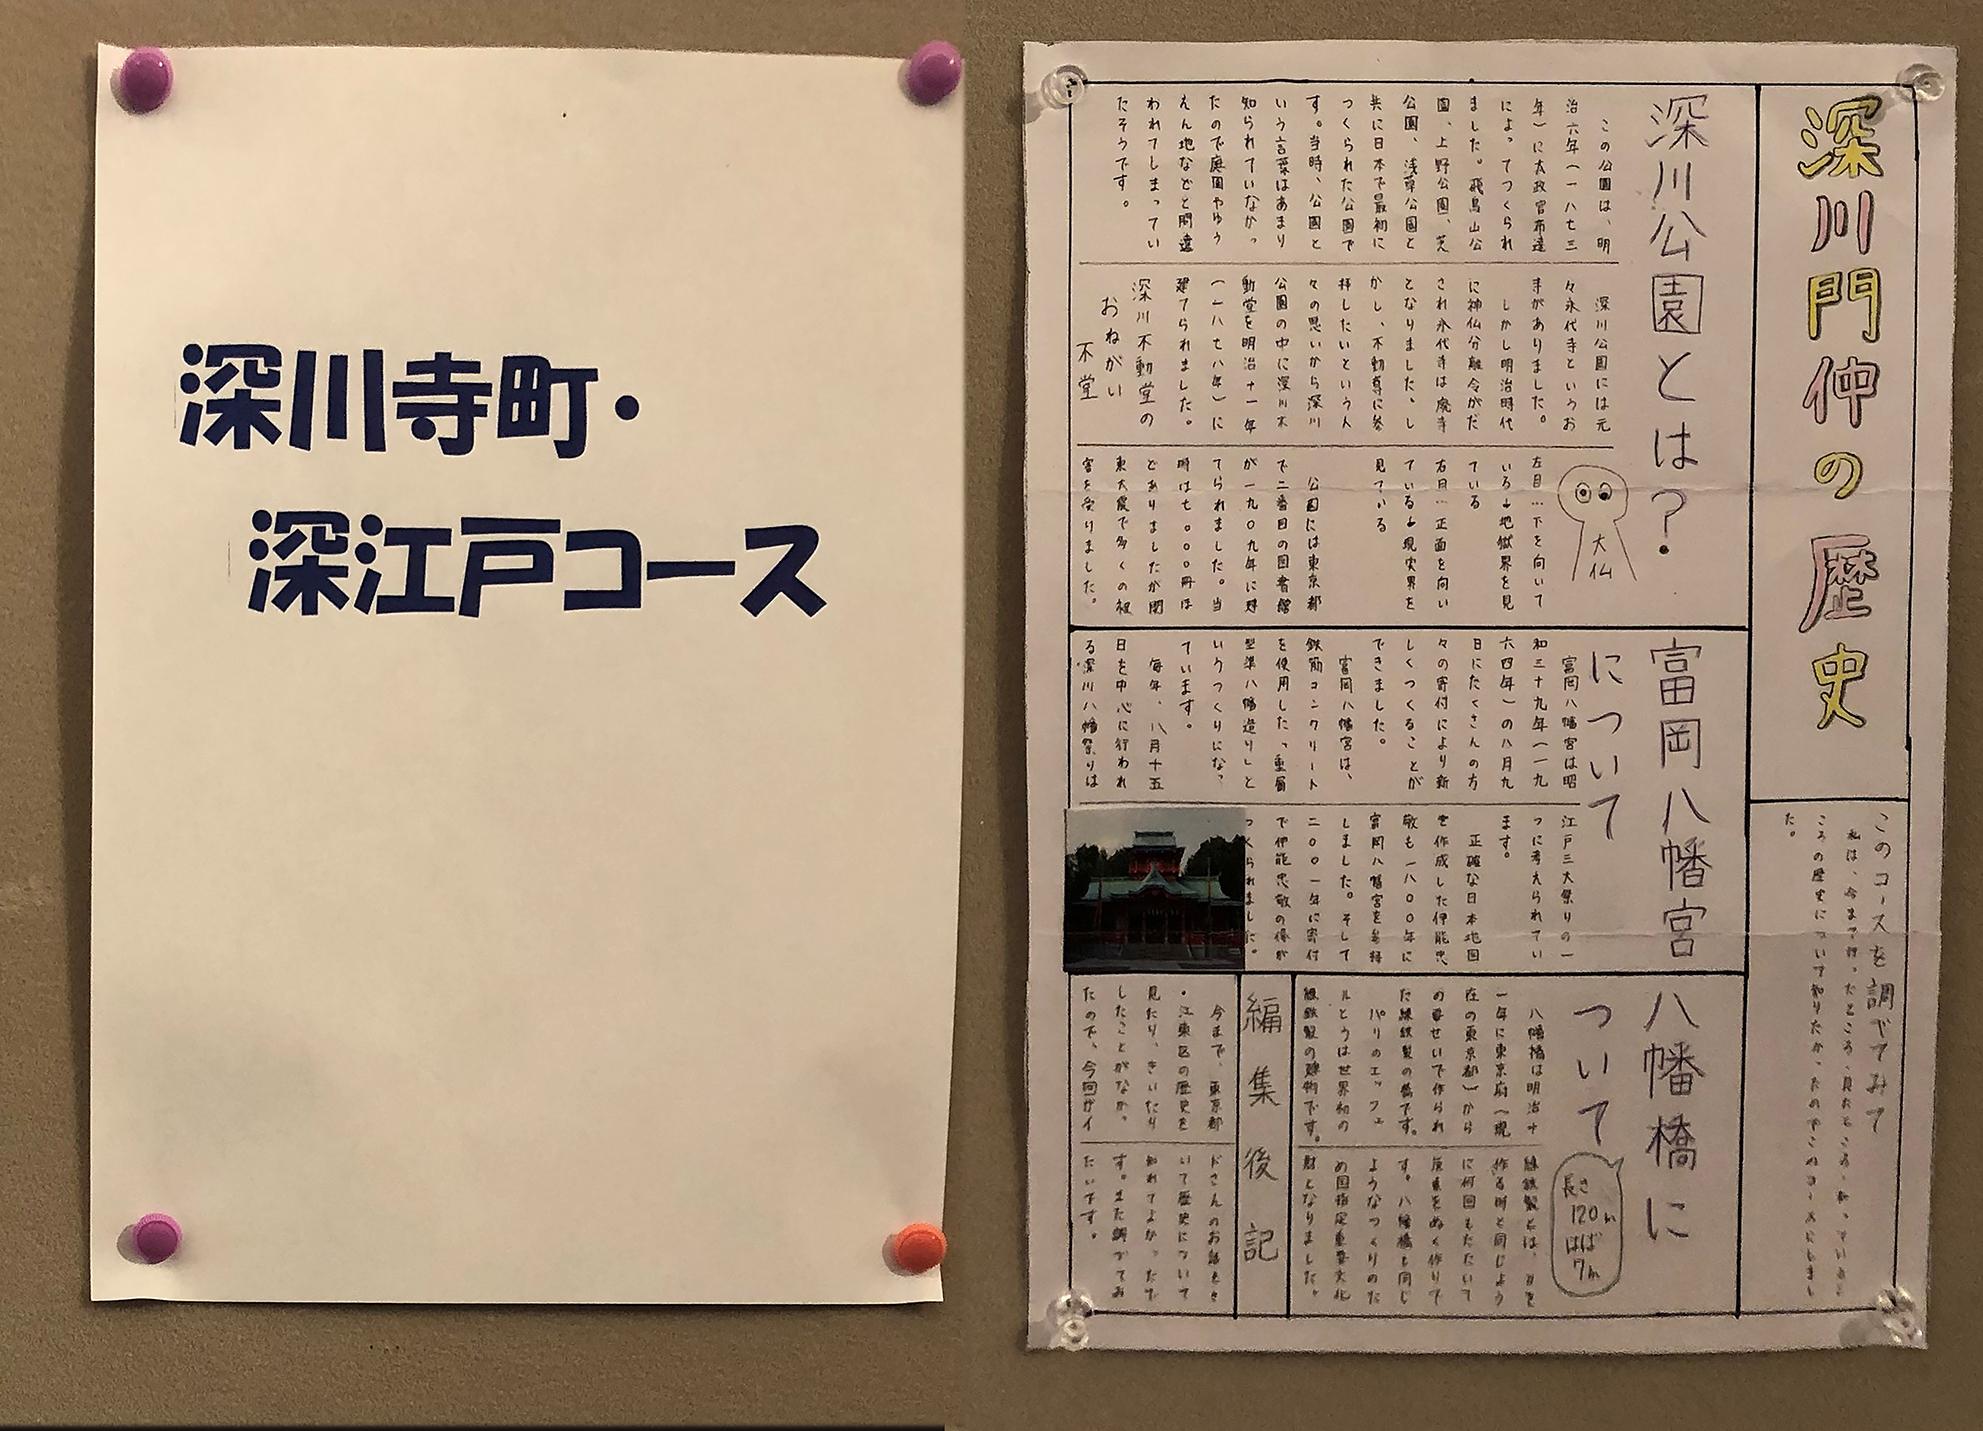 深川寺町・
深江戸コース
深川門仲の歴史
このコースを調べてみて
私は、今まで行ったところ、見たところ、知っている
ころの歴史について知りたかったのでこのコースにしまし
た。
深川公園とは？
この公園は、明
治六年（一八七三
年）に太政官布達
によってつくられ
ました。飛鳥山公
園、上野公園、芝
公園、浅草公園と
共に日本で最初に
つくられた公園で
す。当時、公園と
いう言葉はあまり
知られていなかっ
たので庭園やゆう
えん地などと間違
われてしまってい
たそうです。
深川公園には元
々永代寺というお
寺がありました。
しかし明治時代
に神仏分離令がだ
され永代寺は廃寺
となりました。し
かし、不動尊に参
拝したいという人
々の思いから深川
公園の中に深川不
動堂を明治十一年
（一八七八年）に
建てられました。
深川不動堂の
おねがい
不堂
大仏
左目…下を向いて
いる→地獄界を見
ている
右目…正面を向い
ている→現実界を
見ている
公園には東京都
で二番目の図書館
が一九〇九年に建
てられました。当
時は七〇〇〇冊ほ
どありましたが関
東大震で多くの被
害を受けました。
富岡八幡宮
について
富岡八幡宮は昭
和三十九年（一九
六四年）の八月九
日にたくさんの方
々の寄付により新
しくつくることが
できました。
富岡八幡宮は、
鉄筋コンクリート
を使用した「重層
型準八幡造り」と
いうつくりになっ
ています。
毎年、八月十五
日を中心に行われ
る深川八幡祭りは
江戸三大祭りの一
つに考えられてい
ます。
正確な日本地図
を作成した伊能忠
敬も一八〇〇年に
富岡八幡宮を参拝
しました。そして
二〇〇一年に寄付
で伊能忠敬の像が
つくられました。
八幡橋に
ついて
長さ
120m
はば
7m
八幡橋は明治十
一年に東京府（現
在の東京都）から
の要せいで作られ
た錬鉄製の橋です。
パリのエッフェ
ルとうは世界初の
錬鉄製の建物です。
錬鉄製とは、刀を
作る時と同じよう
に何回もたたいて
炭素をぬく作りで
す。八幡橋も同じ
ようなつくりのた
め国指定重要文化
財となりました。
編集後記
今まで、東京都
・江東区の歴史を
見たり、きいたり
したことがなかっ
たので、今回ガイ
ドさんのお話をき
いて歴史について
知れてよかったで
す。また調べてみ
たいです。